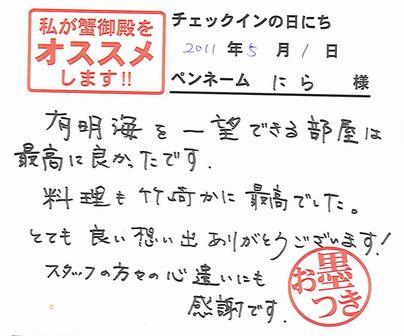 私が蟹御殿を
オススメ
します!!
チェックインの日にち
2011年5月1日
ペンネーム にら 様
有明海を一望できる部屋は
最高に良かったです.
料理も竹崎かに最高でした。
とても良い想い出ありがとうございます!
スタッフの方々の心遣いにも
感謝です.
お墨つき